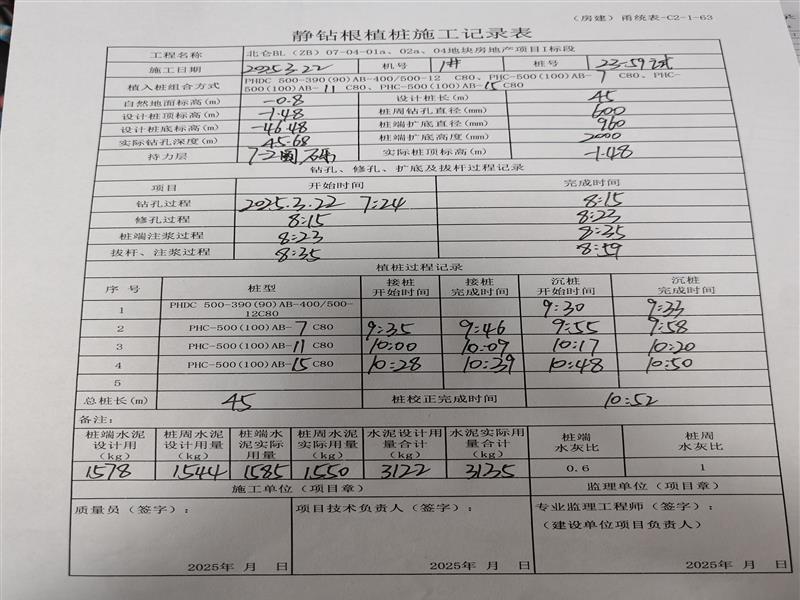 (房建) 甬统表-C2-1-63
静钻根植桩施工记录表
工程名称 北仑BL（ZB）07-04-01a、02a、04地块房地产项目I标段
施工日期 2025.3.22 机号 1# 桩号 23-59
植入桩组合方式 PHDC 500-390(90)AB-400/500-12 C80、PHC-500(100)AB-7 C80、PHC-
500(100)AB-11 C80、PHC-500(100)AB-15 C80
自然地面标高(m) -0.8 设计桩长(m) 45
设计桩顶标高(m) -1.48 桩周钻孔直径(mm) 600
设计桩底标高(m) -46.48 桩端扩底直径(mm) 960
实际钻孔深度(m) 45.68 桩端扩底高度(mm) 2000
持力层 7-2 实际桩顶标高(m) -1.48
钻孔、修孔、扩底及拔杆过程记录
项目 开始时间 完成时间
钻孔过程 2025.3.22 7:24 8:15
修孔过程 8:15 8:23
桩端注浆过程 8:23 8:35
拔杆、注浆过程 8:35 8:59
植桩过程记录
序 号 桩型 接桩 接桩 沉桩 沉桩
开始时间 完成时间 开始时间 完成时间
1 PHDC 500-390(90)AB-400/500-
12C80 9:30 9:33
2 PHC-500(100)AB-7 C80 9:35 9:46 9:55 9:58
3 PHC-500(100)AB-11 C80 10:00 10:09 10:17 10:20
4 PHC-500(100)AB-15 C80 10:28 10:39 10:48 10:50
5
总桩长(m) 45 桩校正完成时间 10:52
备注：
桩端水泥 桩周水泥 桩端水 桩周水泥 水泥设计用 水泥实际用 桩端 桩周
设计用 设计用量 泥实际 实际用量 量合计 量合计 水灰比 水灰比
(kg) (kg) 用量 (kg) (kg) (kg)
1578 1544 1585 1550 3122 3135 0.6 1
施工单位（项目章） 监理单位（项目章）
质量员（签字）： 项目技术负责人（签字）： 专业监理工程师（签字）：
（建设单位项目负责人）
2025年 月 日 2025年 月 日 2025年 月 日